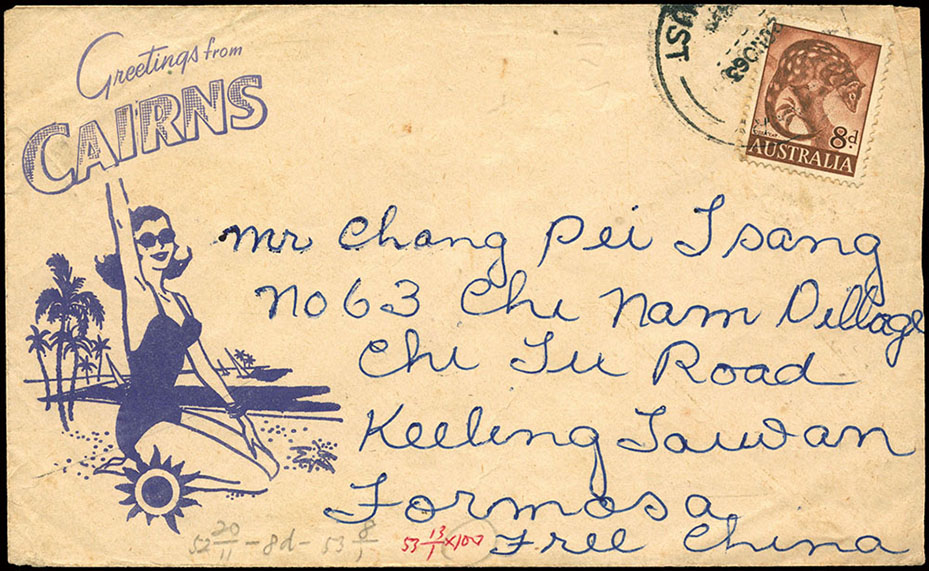 Greetings from
CAIRNS
UST
8d
AUSTRALIA
Mr Chang Pei Tsang
No 63 Chi Nam Dillage
Chi Tu Road
Keelung Taiwan
Formosa
Free China
52 20/11 - 8d - 53 8/1
53 13/1 x100